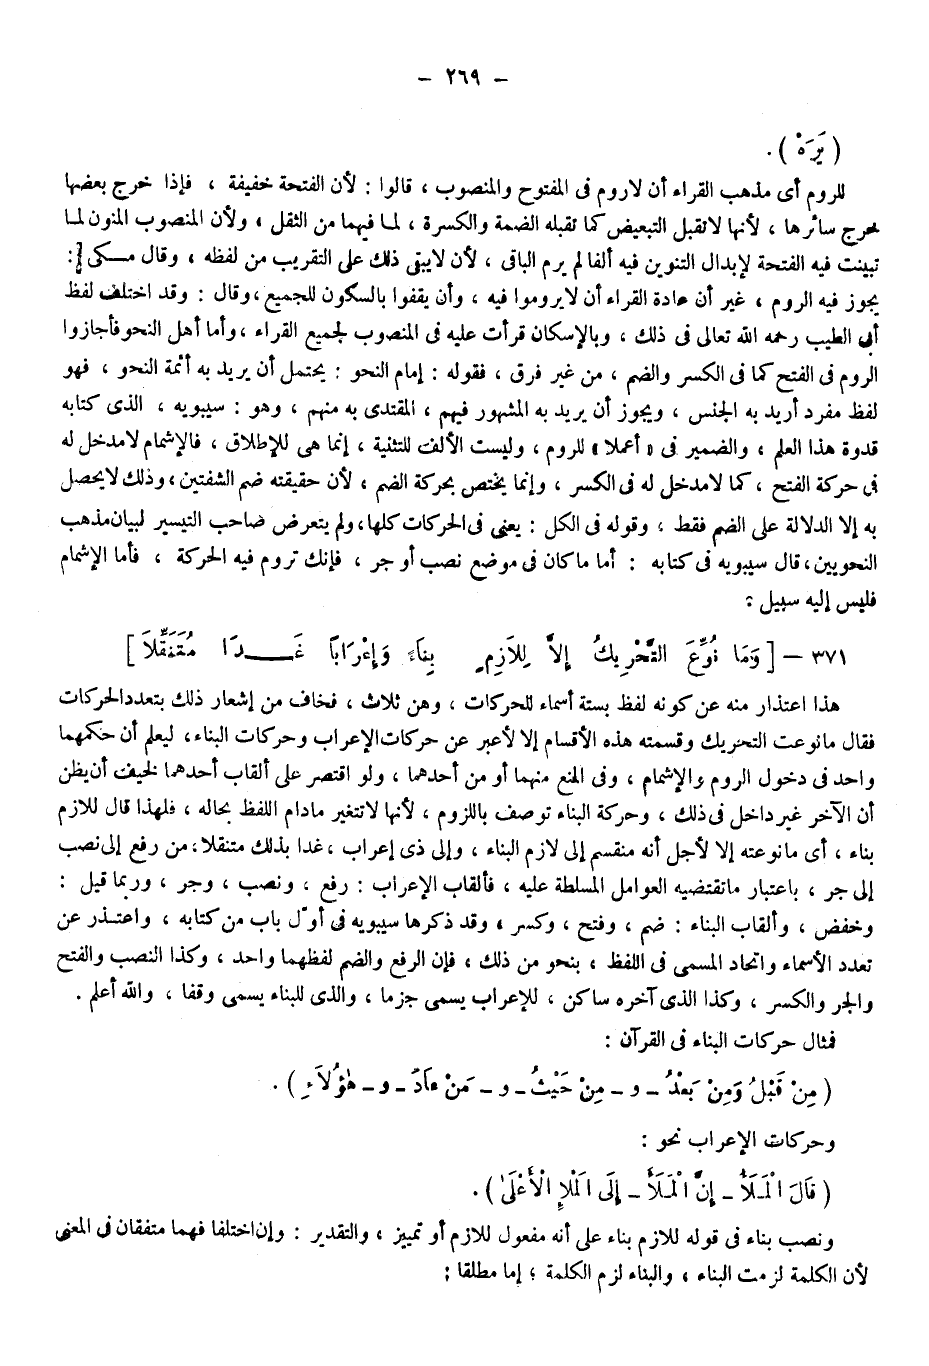 – ٢٦٩ –
( يَرَهْ ) .
للروم أى مذهب القراء أن لاروم فى المفتوح والمنصوب ، قالوا : لأن الفتحة خفيفة ، فإذا خرج بعضها
خرج سائرها ، لأنها لاتقبل التبعيض كما تقبله الضمة والكسرة ، لما فيهما من الثقل ، ولأن المنصوب المنون لما
تبينت فيه الفتحة لإبدال التنوين فيه ألفا لم يرم الباقى ، لأن لايبقى ذلك على التقريب من لفظه ، وقال مكى :
يجوز فيه الروم ، غير أن عادة القراء أن لايروموا فيه ، وأن يقفوا بالسكون للجميع ، وقال : وقد اختلف لفظ
أبى الطيب رحمه الله تعالى فى ذلك ، وبالإسكان قرأت عليه فى المنصوب لجميع القراء ، وأما أهل النحو فأجازوا
الروم فى الفتح كما فى الكسر والضم ، من غير فرق ، فقوله : إمام النحو : يحتمل أن يريد به أئمة النحو ، فهو
لفظ مفرد أريد به الجنس ، ويجوز أن يريد به المشهور فيهم ، المقتدى به منهم ، وهو : سيبويه ، الذى كتابه
قدوة هذا العلم ، والضمير فى « أعملا » للروم ، وليست الألف للتثنية ، إنما هى للإطلاق ، فالإشمام لامدخل له
فى حركة الفتح ، كما لامدخل له فى الكسر ، وإنما يختص بحركة الضم ، لأن حقيقته ضم الشفتين ، وذلك لايحصل
به إلا الدلالة على الضم فقط ، وقوله فى الكل : يعنى فى الحركات كلها ، ولم يتعرض صاحب التيسير لبيان مذهب
النحويين ، قال سيبويه فى كتابه : أما ماكان فى موضع نصب أو جر ، فإنك تروم فيه الحركة ، فأما الإشمام
فليس إليه سبيل :
٣٧١ – [ وَمَا نُوِّعَ التَّحْرِيكُ إِلاَّ لِلَازِمٍ بِنَاءً وَإِعْرَاباً غَــدَا مُتَنَقِّلاَ ]
هذا اعتذار منه عن كونه لفظ بستة أسماء للحركات ، وهن ثلاث ، فخاف من إشعار ذلك بتعدد الحركات
فقال مانوعت التحريك وقسمته هذه الأقسام إلا لأعبر عن حركات الإعراب وحركات البناء ، ليعلم أن حكمهما
واحد فى دخول الروم والإشمام ، وفى المنع منهما أو من أحدهما ، ولو اقتصر على ألقاب أحدهما لخيف أن يظن
أن الآخر غير داخل فى ذلك ، وحركة البناء توصف باللزوم ، لأنها لاتتغير مادام اللفظ بحاله ، فلهذا قال للازم
بناء ، أى مانوعته إلا لأجل أنه منقسم إلى لازم البناء ، وإلى ذى إعراب ، غدا بذلك متنقلا ، من رفع إلى نصب
إلى جر ، باعتبار ماتقتضيه العوامل المسلطة عليه ، فألقاب الإعراب : رفع ، ونصب ، وجر ، وربما قيل :
وخفض ، وألقاب البناء : ضم ، وفتح ، وكسر ، وقد ذكرها سيبويه فى أوّل باب من كتابه ، واعتذر عن
تعدد الأسماء واتحاد المسمى فى اللفظ ، بنحو من ذلك ، فإن الرفع والضم لفظهما واحد ، وكذا النصب والفتح
والجر والكسر ، وكذا الذى آخره ساكن ، للإعراب يسمى جزما ، والذى للبناء يسمى وقفا ، والله أعلم .
فمثال حركات البناء فى القرآن :
( مِنْ قَبْلُ وَمِنْ بَعْدُ – و – مِنْ حَيْثُ – و – مَنْ ءَادَ – و – هٰؤُلَاءِ ) .
وحركات الإعراب نحو :
( قَالَ الْمَلَأُ – إِنَّ الْمَلَأَ – إِلَى الْمَلَإِ الْأَعْلَىٰ ) .
ونصب بناء فى قوله للازم بناء على أنه مفعول للازم أو تمييز ، والتقدير : وإن اختلفا فهما متفقان فى المعنى
لأن الكلمة لزمت البناء ، والبناء لزم الكلمة ؛ إما مطلقا ؛